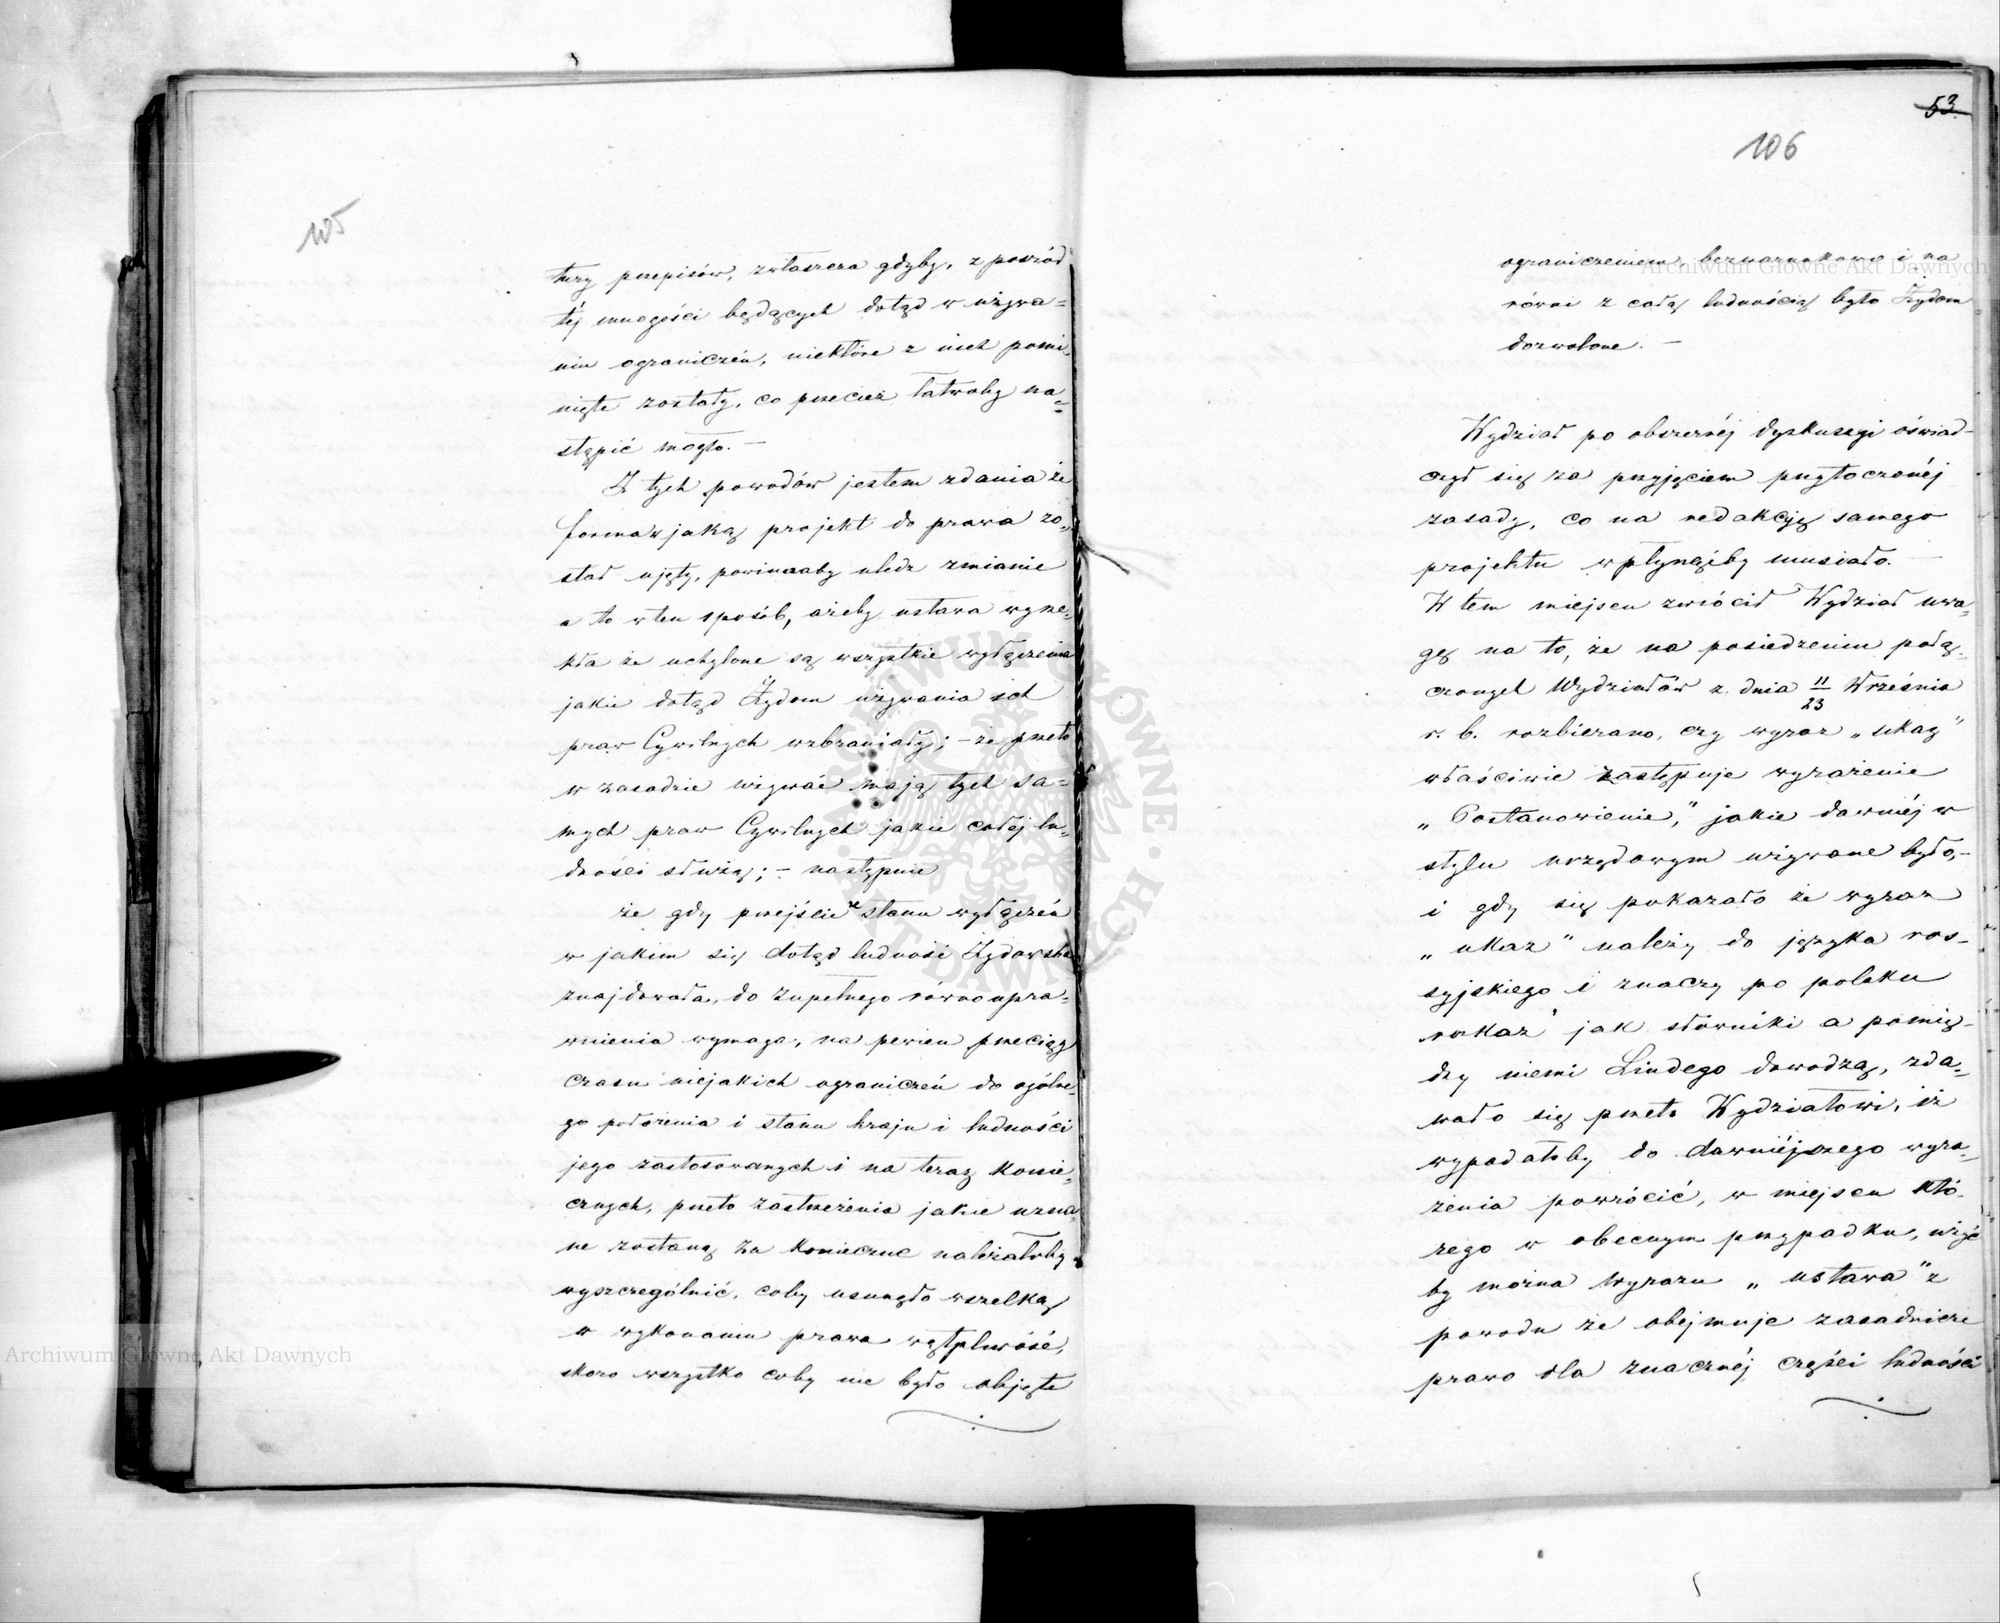 105
tury przepisów, zwłaszcza gdyby, z pośród
téj mnogości będących dotąd w używa=
niu ograniczéń, niektóre z nich pomi,
nięte zostały, co przecież łatwoby na=
stąpić mogło. —
Z tych powodów jestem zdania że
forma w jaką projekt do prawa zo,
stał ujęty, powinnaby uledz zmianie
a to w ten sposób, ażeby ustawa wyrze,
kła że uchylone są wszystkie wyłączenia
jakie dotąd Żydom używania ich
praw Cywilnych wzbraniały; – że przeto
w zasadzie używać mają tych sa=
mych praw Cywilnych jakie całéj lu,
dności służą; – następnie
że gdy przejście ze stanu wyłączéń
w jakim się dotąd ludność Żydowska
znajdowała, do zupełnego równoupra=
wnienia wymaga, na pewien przeciąg
czasu niejakich ograniczéń do ogólne,
go położenia i stanu kraju i ludności
jego zastosowanych i na teraz konie,
cznych, przeto zastrzeżenia jakie uzna,
ne zostaną za konieczne należałoby
wyszczególnić, coby usunęło wszelką
w wykonaniu prawa wątpliwość,
skoro wszystko coby nie było objęte
53
106
ograniczeniem, bezwarunkowo i na
równi z całą ludnością było Żydom
dozwolone. —
Wydział po obszernéj dyskussyi oświad=
czył się za przyjęciem przytoczonéj
zasady, co na redakcyę samego
projektu wpłynąćby musiało. —
W tem miejscu zwrócił Wydział uwa,
gę na to, że na posiedzeniu połą,
czonych Wydziałów z dnia 11/23 Września
r. b. rozbierano, czy wyraz „ukaz”
właściwie zastępuje wyrażenie
„Postanowienie,” jakie dawniéj w
stylu urzędowym używane było, –
i gdy się pokazało że wyraz
„ukaz” należy do języka ros–
syjskiego i znaczy po polsku
rozkaz, jak słowniki a pomię–
dzy niemi Lindego dowodzą, zda,
wało się przeto Wydziałowi, iż
wypadałoby do dawniéjszego wyra,
żenia powrócić, w miejscu któ–
rego w obecnym przypadku, użyć
by można wyrazu „ustawa” z
powodu że obejmuje zasadnicze
prawo dla znacznéj części ludności
Archiwum Główne Akt Dawnych
Archiwum Główne Akt Dawnych
ARCHIWUM GŁÓWNE AKT DAWNYCH